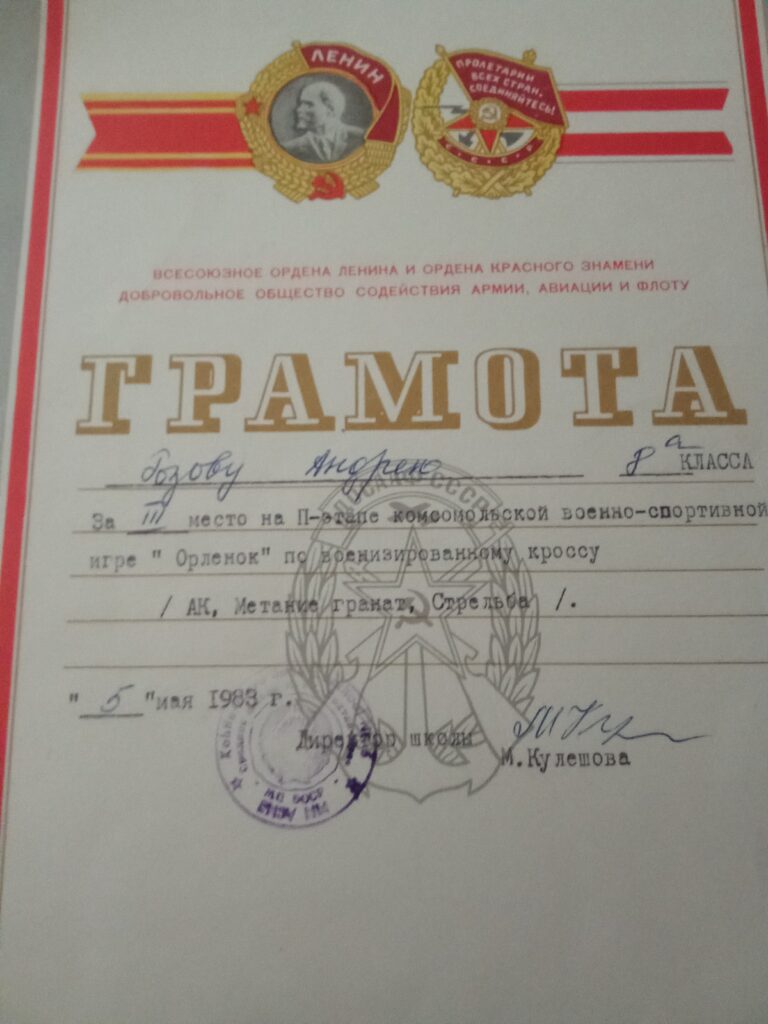 ЛЕНИН
ПРОЛЕТАРИИ
ВСЕХ СТРАН,
СОЕДИНЯЙТЕСЬ!
С.С.С.Р
ВСЕСОЮЗНОЕ ОРДЕНА ЛЕНИНА И ОРДЕНА КРАСНОГО ЗНАМЕНИ
ДОБРОВОЛЬНОЕ ОБЩЕСТВО СОДЕЙСТВИЯ АРМИИ, АВИАЦИИ И ФЛОТУ
ГРАМОТА
Гозову Андрею 8 а КЛАССА
ДОСААФ СССР
За III место на П-этапе комсомольской военно-спортивной
игре " Орленок" по военизированному кроссу
/ АК, Метание гранат, Стрельба /.
" 5 "мая 1983 г.
Директор школы
М.Кулешова